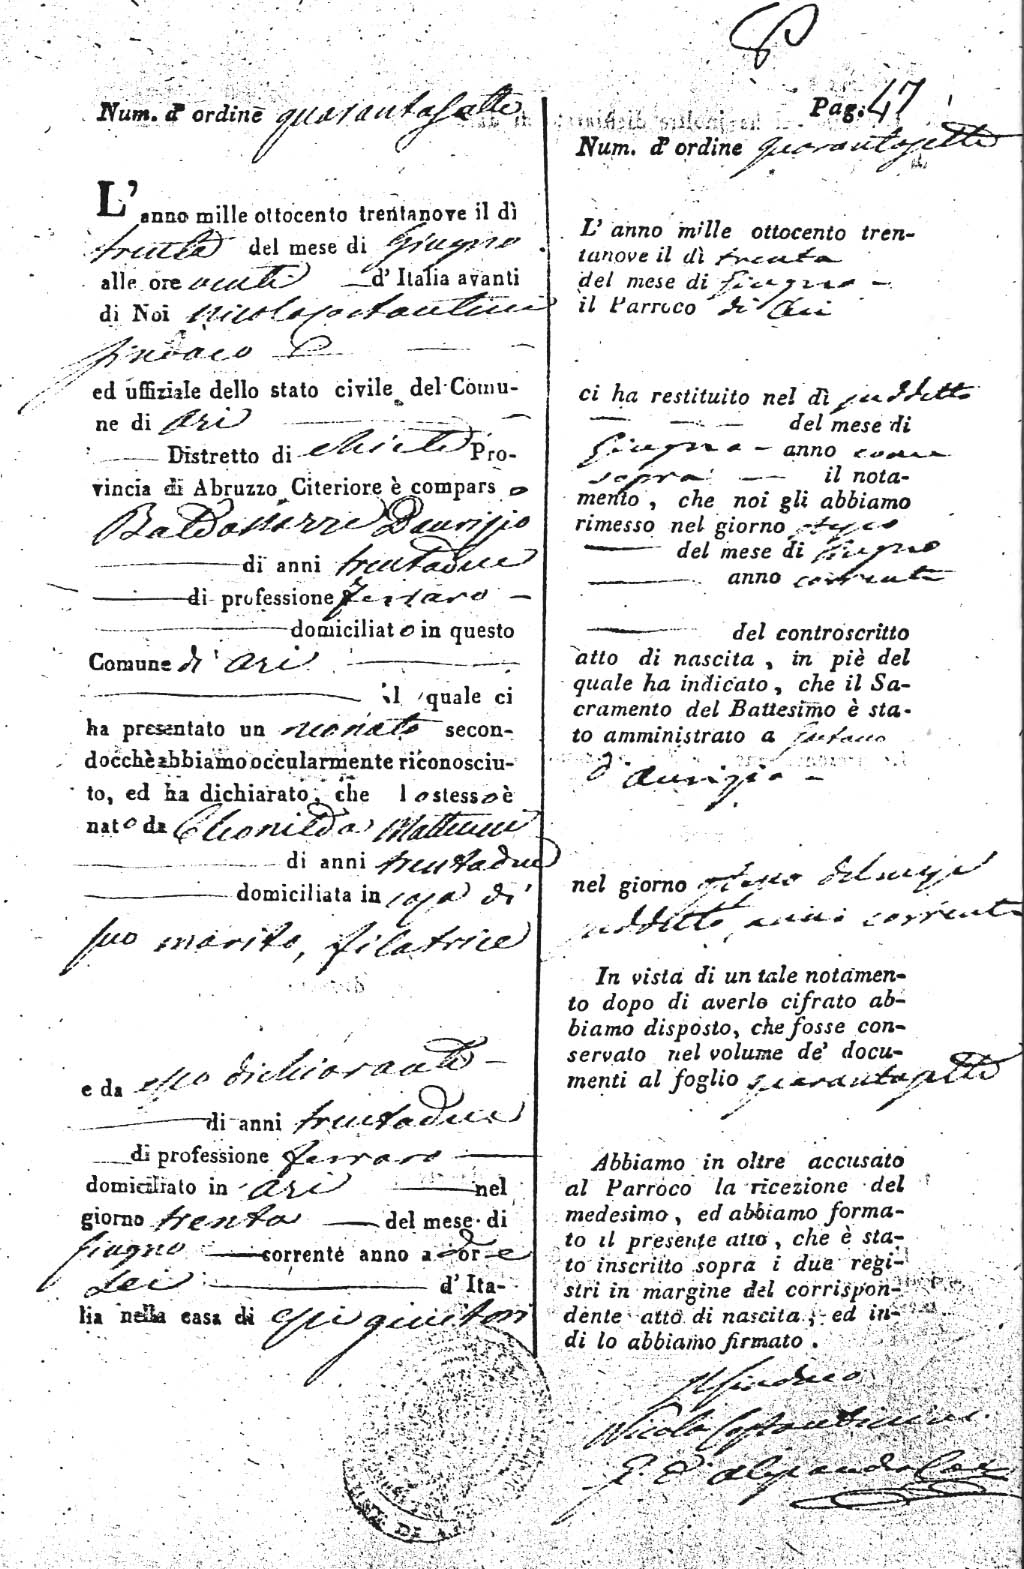 Pag. 47
Num. d' ordine quarantasette
L'anno mille ottocento trentanove il dì
trenta del mese di Giugno
alle ore venti d' Italia avanti
di Noi Nicola Costantini
Sindaco
ed uffiziale dello stato civile del Comu-
ne di Ari
Distretto di Chieti Pro-
vincia di Abruzzo Citeriore è compars o
Baldassarre Daurizio
di anni trentadue
di professione Ferraro
domiciliato in questo
Comune di Ari
il quale ci
ha presentato un neonato secon-
docchè abbiamo occularmente riconosciu-
to, ed ha dichiarato, che lo stesso è
nato da Cleonilda Matteucci
di anni trentadue
domiciliata in casa di
suo marito, filatrice
e da esso dichiarante
di anni trentadue
di professione Ferraro
domiciliato in Ari nel
giorno trenta del mese di
Giugno corrente anno ad or e
sei d' Ita-
lia nella casa di essi genitori
Num. d' ordine quarantasette
L' anno mille ottocento tren-
tanove il dì trenta
del mese di Giugno
il Parroco di Ari
ci ha restituito nel dì suddetto
del mese di
Giugno anno come
sopra il nota-
mento, che noi gli abbiamo
rimesso nel giorno stesso
del mese di Giugno
anno corrente
del controscritto
atto di nascita, in piè del
quale ha indicato, che il Sa-
cramento del Battesimo è sta-
to amministrato a Gaetano
d'Aurizio
nel giorno stesso del mese
suddetto anno corrente
In vista di un tale notamen-
to dopo di averlo cifrato ab-
biamo disposto, che fosse con-
servato nel volume de' docu-
menti al foglio quarantasette
Abbiamo in oltre accusato
al Parroco la ricezione del
medesimo, ed abbiamo forma-
to il presente atto, che è sta-
to inscritto sopra i due regi-
stri in margine del corrispon-
dente atto di nascita; ed in-
di lo abbiamo firmato.
Il Sindaco
Nicola Costantini
D'Alessandro